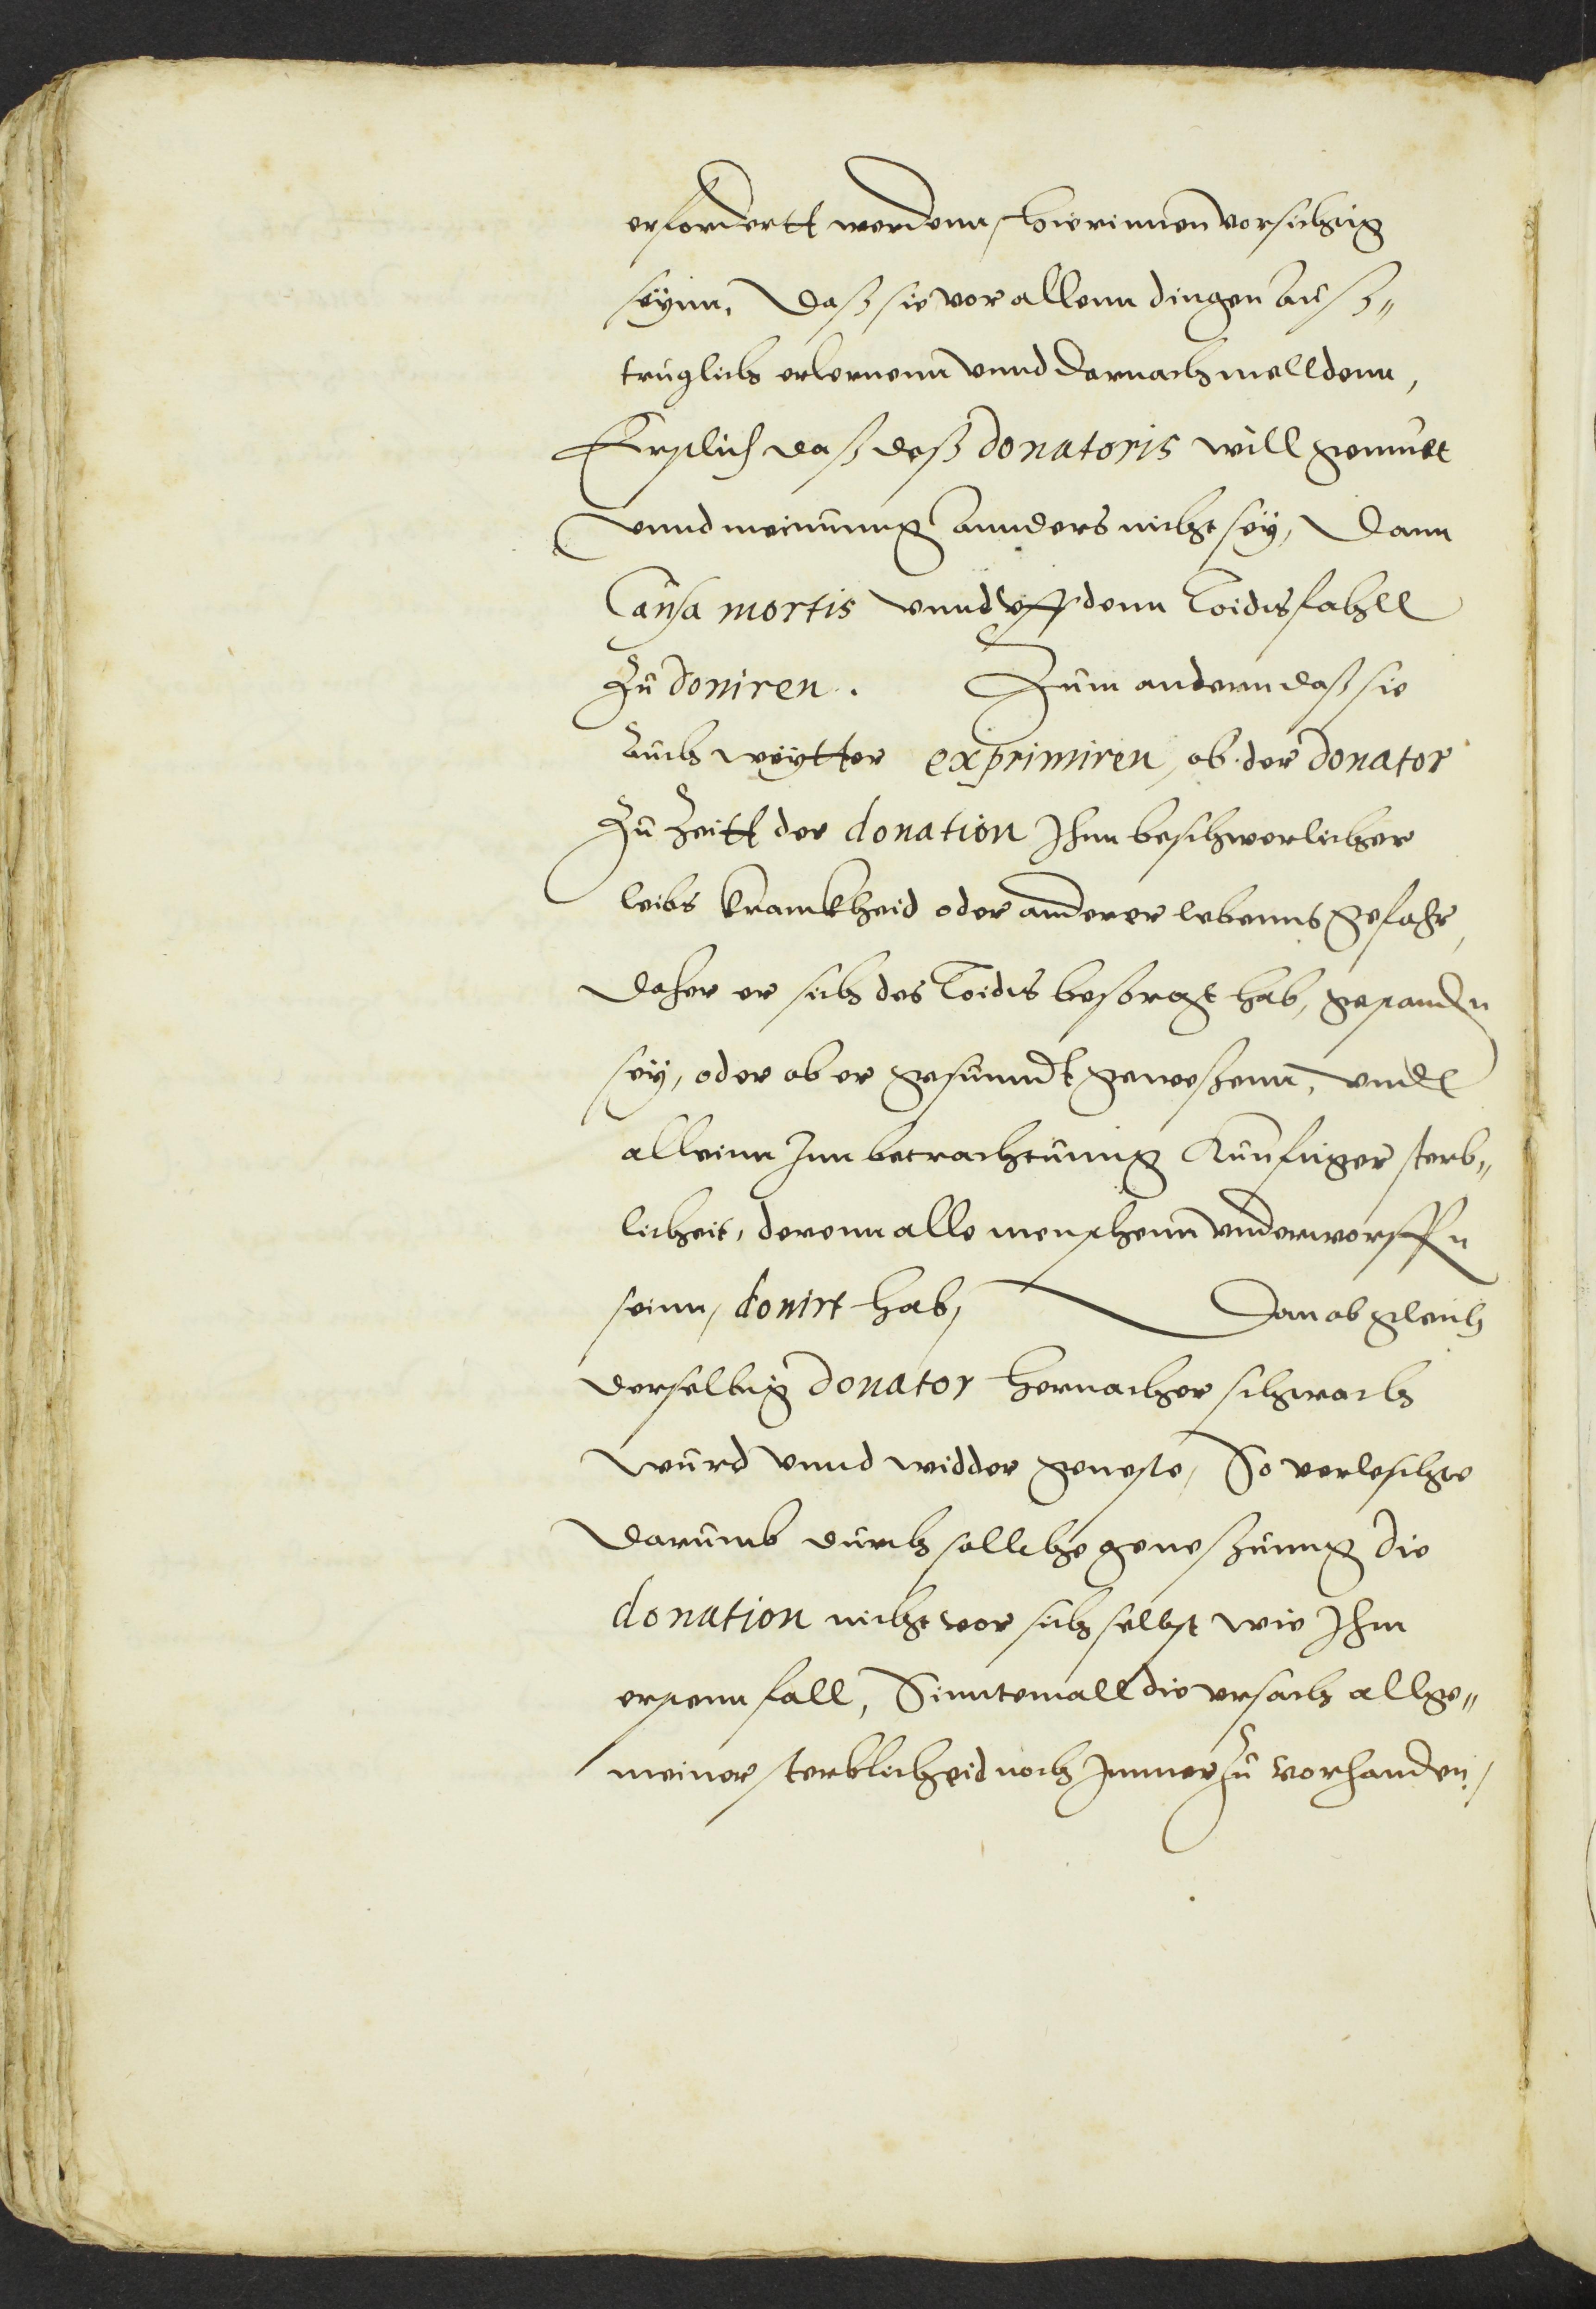 erfordertt werdenn, hierinnen vorsichtig
seÿnn, Daß sie vor allenn dingen auß„
truglich erlernenn vnnd darnach melldenn,
Erstlich daß deß donatoris will gemuet
vnnd meinunng annders nicht seÿ, dann
Causa mortis vnnd vff denn Toidsfahll
zu doniren. Zum andern daß sie
auch weÿtter exprimiren, ob der donator
zu Zeitt der donation Ihnn beschwerlicher
leibs kranckheid oder anderer lebenns gefahr,
daher er sich des Toids besorgt hab, gestanden
seÿ, oder ob er gesunndt geweßenn, vnnd
alleinn Inn betrachtunng Kunftiger sterb„
licheit, derenn alle menschenn vnderworffen
seinn, donirt hab, Dan ob gleich
derselbig donator hernacher schwach
wurd vnnd widder geneste, So verleschte
darumb durch sollche geneßunng die
donation nicht vor sich selbst wie Ihm
erstenn fall, Sinntemall die vrsach allge„
meiner sterblicheid noch Immer zu vorhanden,